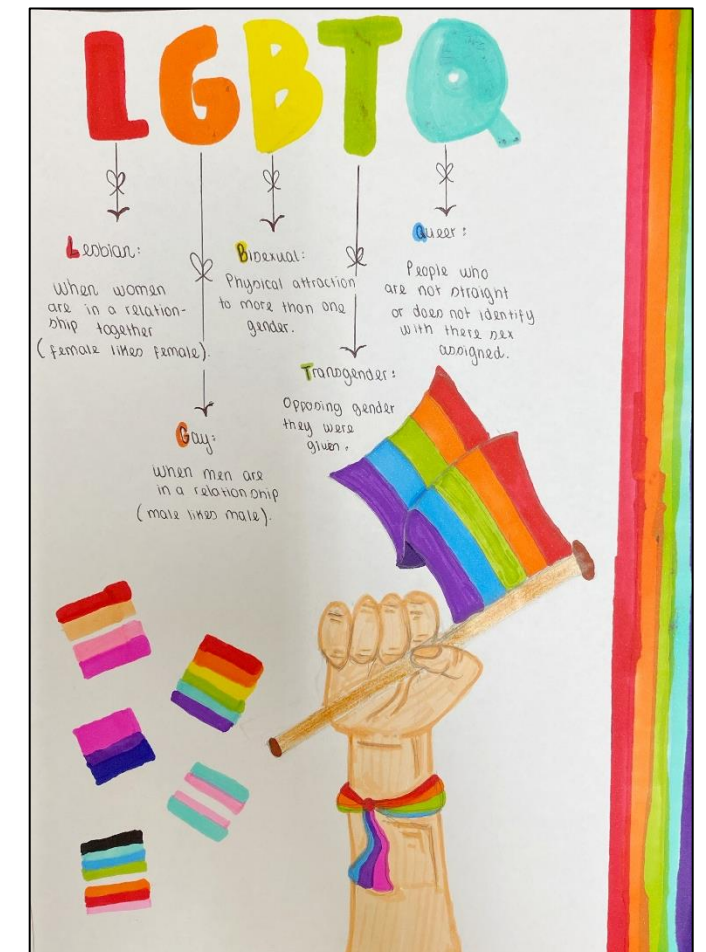 LGBTQ
Lesbian:
When women
are in a relation-
ship together
(female likes female).
Gay:
When men are
in a relationship
(male likes male).
Bisexual:
Physical attraction
to more than one
gender.
Transgender:
Opposing gender
they were
given.
Queer:
People who
are not straight
or does not identify
with there sex
assigned.